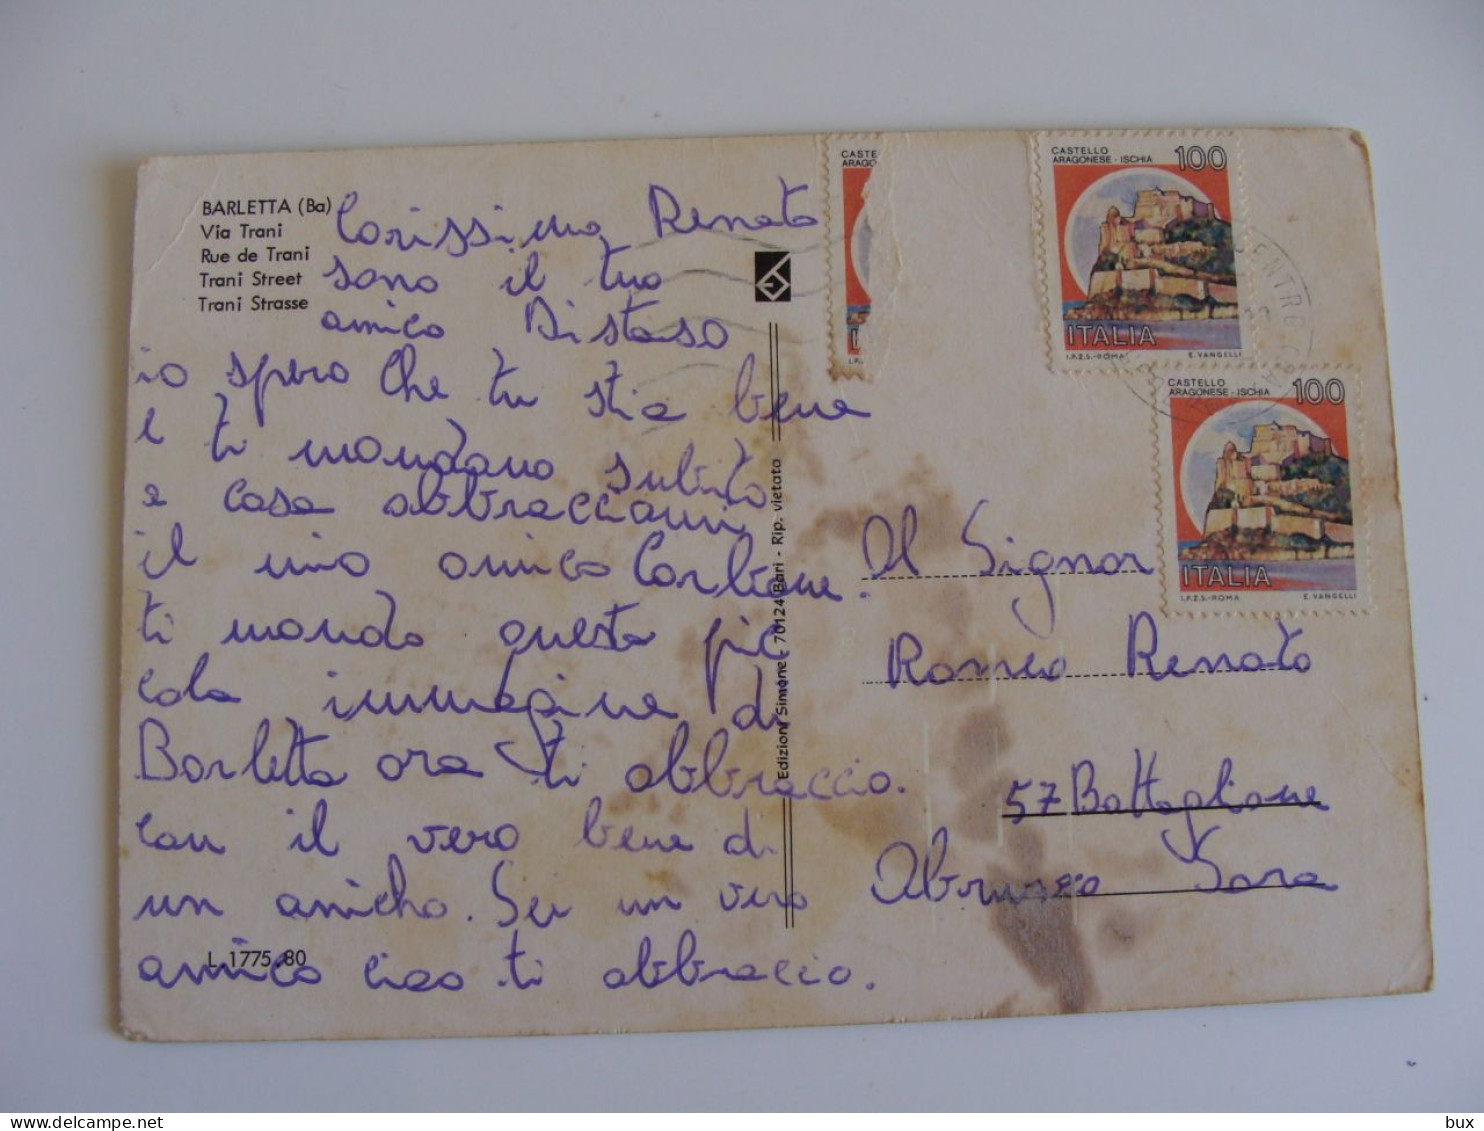 BARLETTA (Ba)
Via Trani
Rue de Trani
Trani Street
Trani Strasse
Carissimo Renato
sono il tuo
amico Distaso
io spero che tu stia bene
e ti mandano subito
a casa abbracciami
il mio amico Carbone.
ti mando questa pic
cola immagine di
Barletta ora ti abbraccio.
con il vero bene di
un amicho. Sei un vero
amico ciao ti abbraccio.
L. 1775.80
Edizioni Simone - 70124 Bari - Rip. vietata
CASTE
ARAGO
I
I.P.Z.
CASTELLO
ARAGONESE - ISCHIA
100
ITALIA
I.P.Z.S.-ROMA E. VANGELLI
CENTRO
CASTELLO
ARAGONESE - ISCHIA
100
ITALIA
I.P.Z.S.-ROMA E. VANGELLI
Al Signor
Romeo Renato
57 Battaglione
Abruzzo Sora
bux